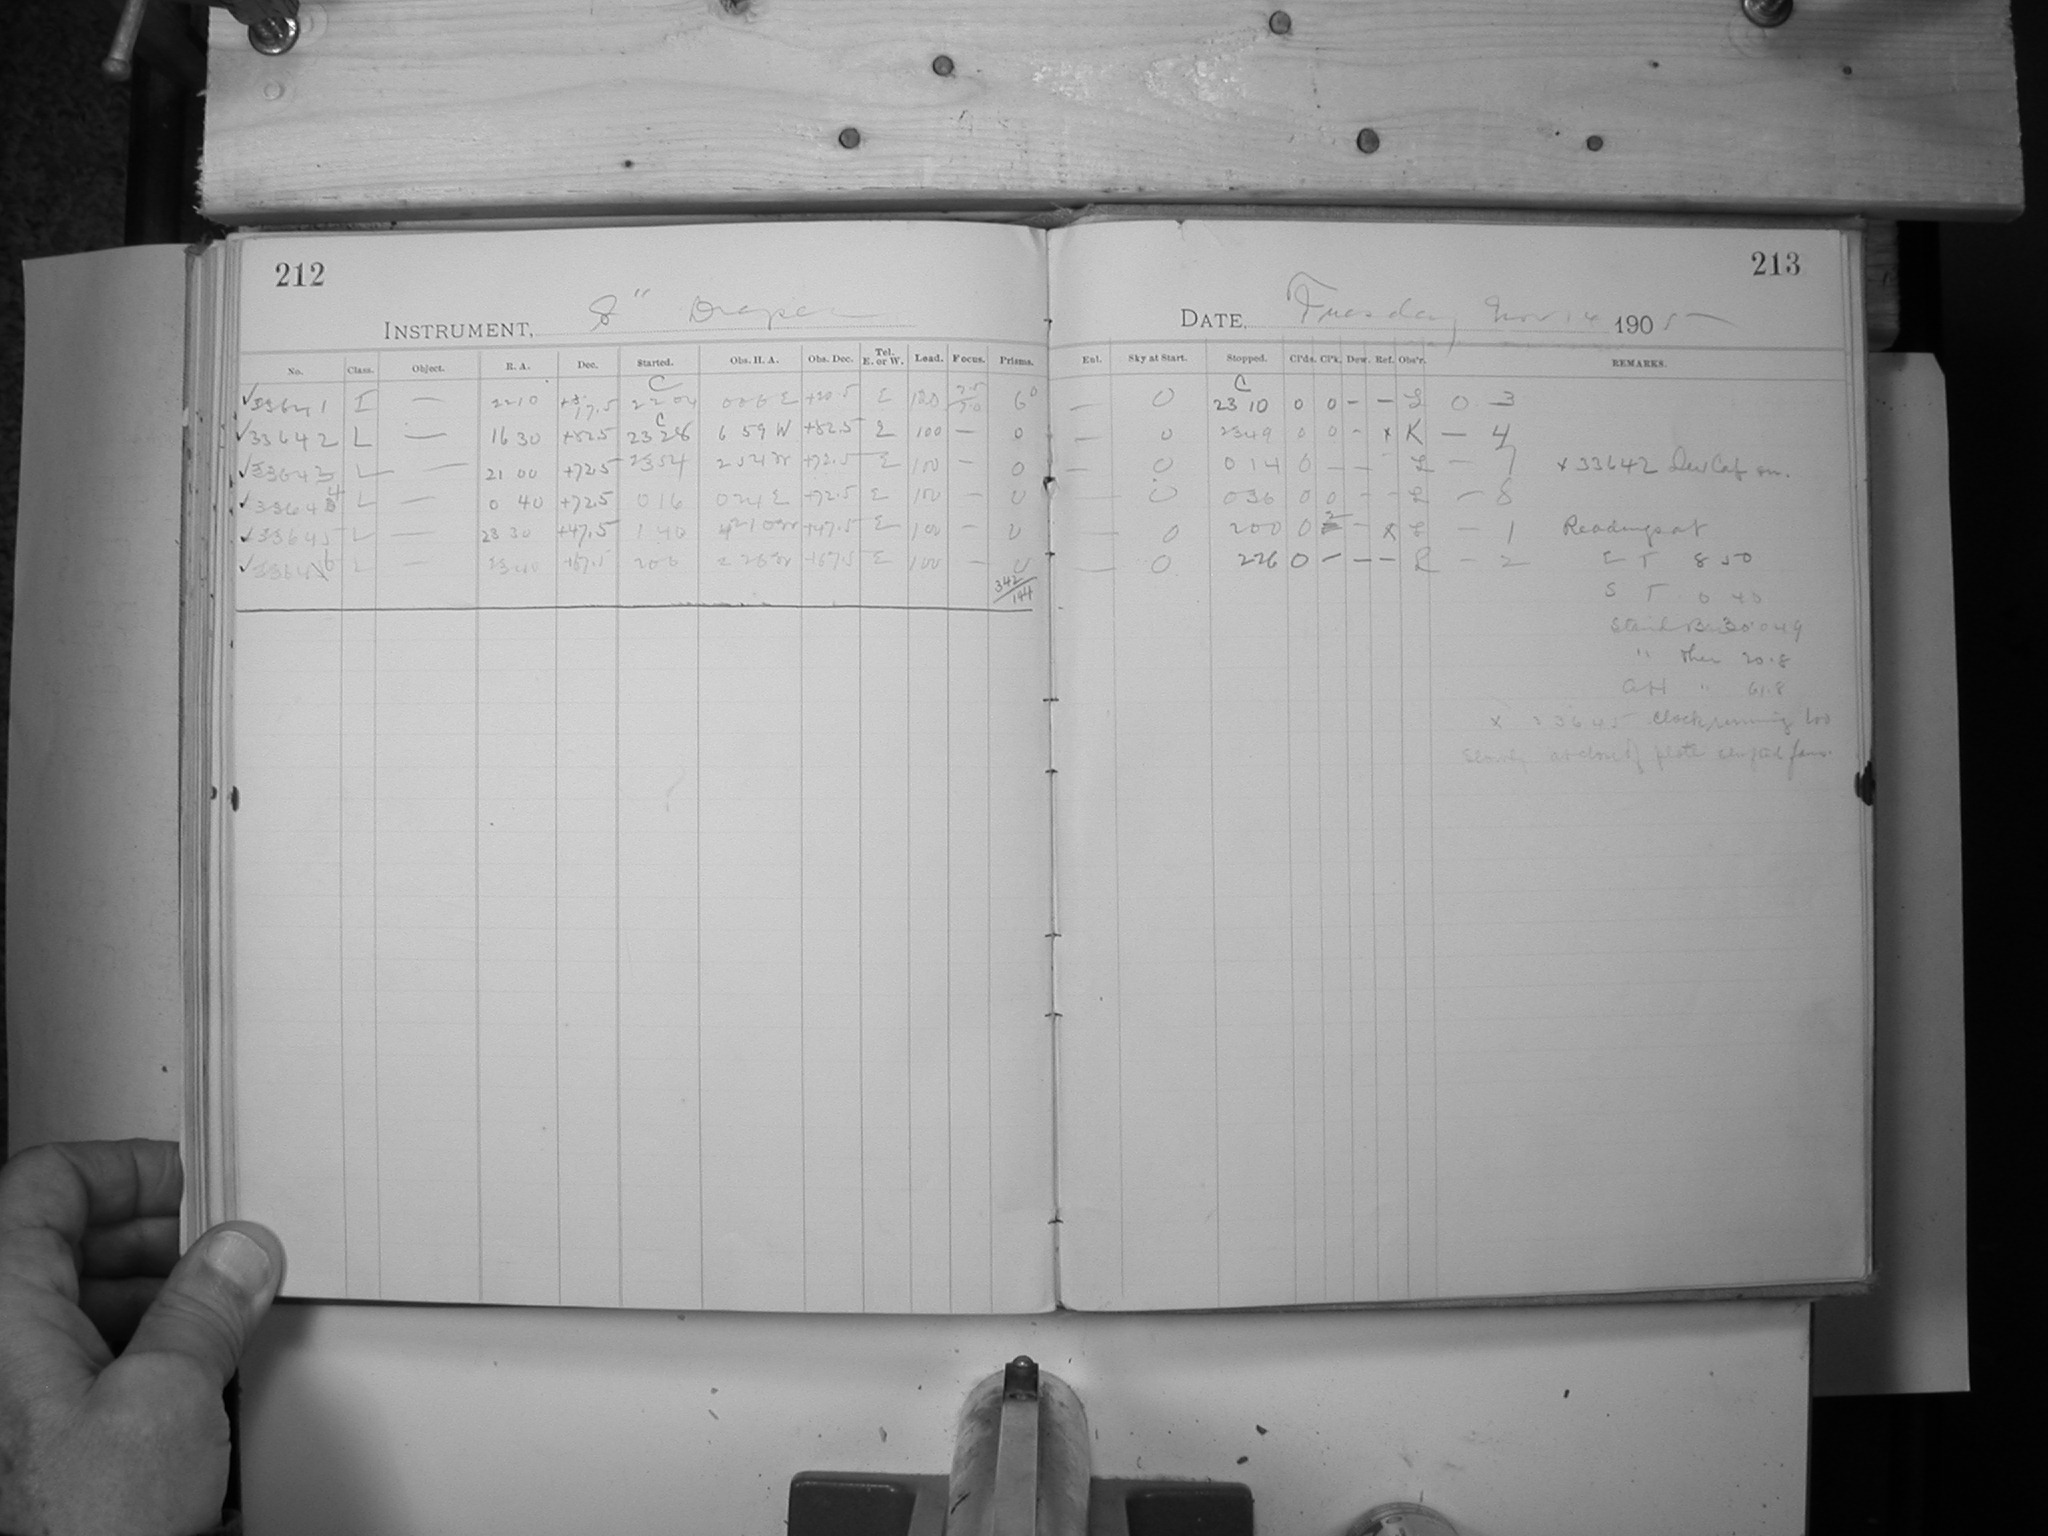 212
INSTRUMENT, 8" Draper
No. Class. Object. R. A. Dec. Started. Obs. H. A. Obs. Dec. Tel. E. or W. Load. Focus. Prisms.
C
✓33641 I — 2210 22 04 006 E +20.5 E 6 0
✓33642 L — 16 30 +82.5 C 23 28 6 59 W +82.5 E 100 — 0
✓33643 L — 21 00 +72.5 2354 2 54 W +72.5 E 100 — 0
✓33644 L — 0 40 +72.5 016 024 E +72.5 E 100 — 0
✓33645 L — 23 30 +47.5 1 40 2 10 W +47.5 E 100 — 0
✓33646 L — 2340 +67.5 200 2 26 W +67.5 E 100 — 0
342/144
213
DATE, Tuesday, Nov 14 1905
Enl. Sky at Start. Stopped. Cl'ds. Cl'k. Dew. Ref. Obs'r. REMARKS.
C
— 0 23 10 0 0 - - L 0 3
— 0 2349 0 0 - x K — 4
— 0 014 0 — — L — 7 x 33642 Dew Cap on.
— 0 036 0 0 - - L — 8
— 0 200 0 2 - x L — 1 Readings at
— 0 226 0 - - - L — 2 E T 8 50
S T 0 40
Stand Bar 30.049
" Ther 20.8
Att " 61.8
x 33645 Clock running too
slowly at close of plate